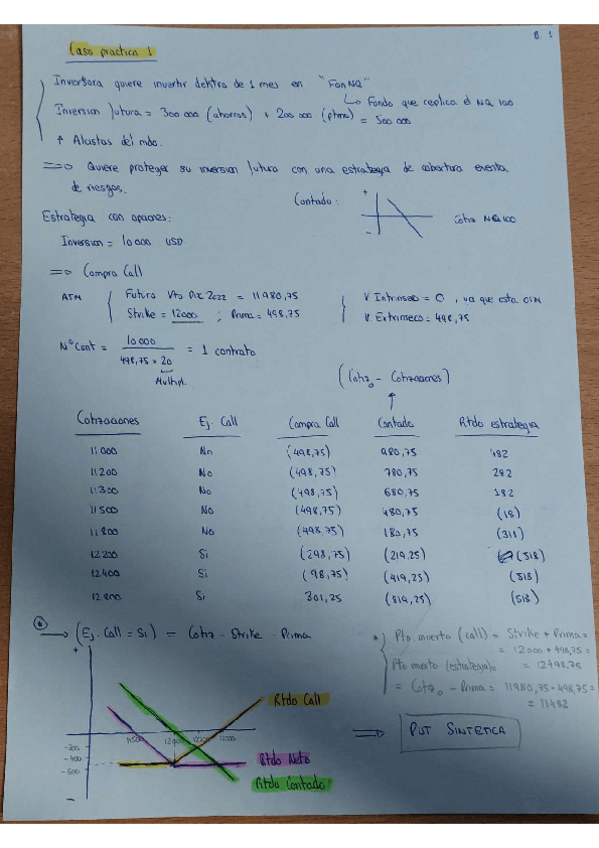 8. 1
Caso practico 1
Inversora quiere invertir dentro de 1 mes en "FonNQ"
↳ Fondo que replica el NQ 100
Inversion futura = 300 000 (ahorros) + 200 000 (ptmo) = 500 000
↑ Alcistas del mdo.
==> Quiere proteger su inversion futura con una estrategia de cobertura
de riesgos.
Contado: + - Cotiz NQ100
Estrategia con opciones:
Inversion = 10 000 USD
==> Compra Call
ATM { Futuro Vto Dic 2022 = 11 980,75
Strike = 12000 ; Prima = 498,75
{ V. Intrinseco = 0, ya que esta OTM
V. Extrinseco = 498,75
Nº Cont = 10 000 / 498,75 x 20 = 1 contrato
Multipl.
(Cotiz0 - Cotizaciones)
↑
Cotizaciones Ej. Call Compra Call Contado Rtdo estrategia
11 000 No (498,75) 980,75 482
11 200 No (498,75) 780,75 282
11 300 No (498,75) 680,75 182
11 500 No (498,75) 480,75 (18)
11 800 No (498,75) 180,75 (318)
12 200 Si (298,75) (219,25) (518)
12 400 Si (98,75) (419,25) (518)
12 800 Si 301,25 (819,25) (518)
→ (Ej. Call = Si) = Cotiz - Strike - Prima
Pto muerto (call) = Strike + Prima =
= 12000 + 498,75 =
= 12498,75
Pto muerto (estrategia) =
= Cotiz0 - Prima = 11980,75 - 498,75 =
= 11482
+
Rtdo Call
11500 12000 12500
-200
-400
-600
-
Rtdo Neto
Rtdo Contado
==> PUT SINTETICA